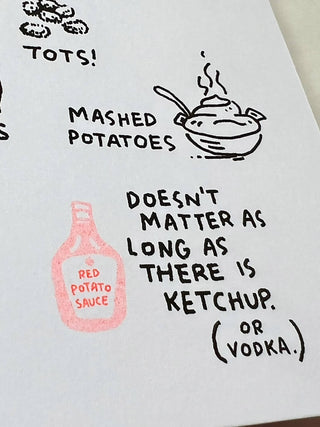 TOTS!
MASHED
POTATOES
S
DOESN'T
MATTER AS
LONG AS
THERE IS
KETCHUP.
(OR
VODKA.)
RED
POTATO
SAUCE